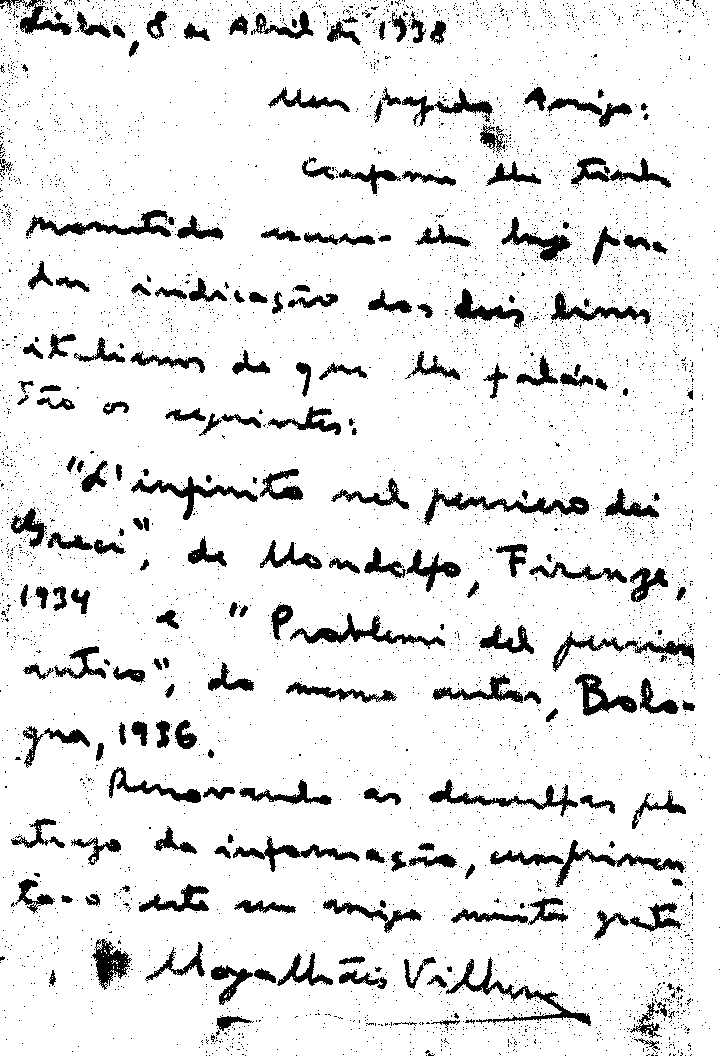 Lisboa, 8 de Abril de 1938
Meu prezado Amigo:
Conforme lhe tinha
prometido escrevo-lhe hoje para
dar indicação dos dois livros
italianos de que lhe falára.
São os seguintes:
"L'infinito nel pensiero dei
Greci", de Mondolfo, Firenze,
1934 e "Problemi del pensiero
antico", do mesmo autor, Bolo-
gna, 1936.
Renovando as desculpas pelo
atrazo da informação, cumprimen
ta-o este seu amigo muito grato
Magalhães Vilhena